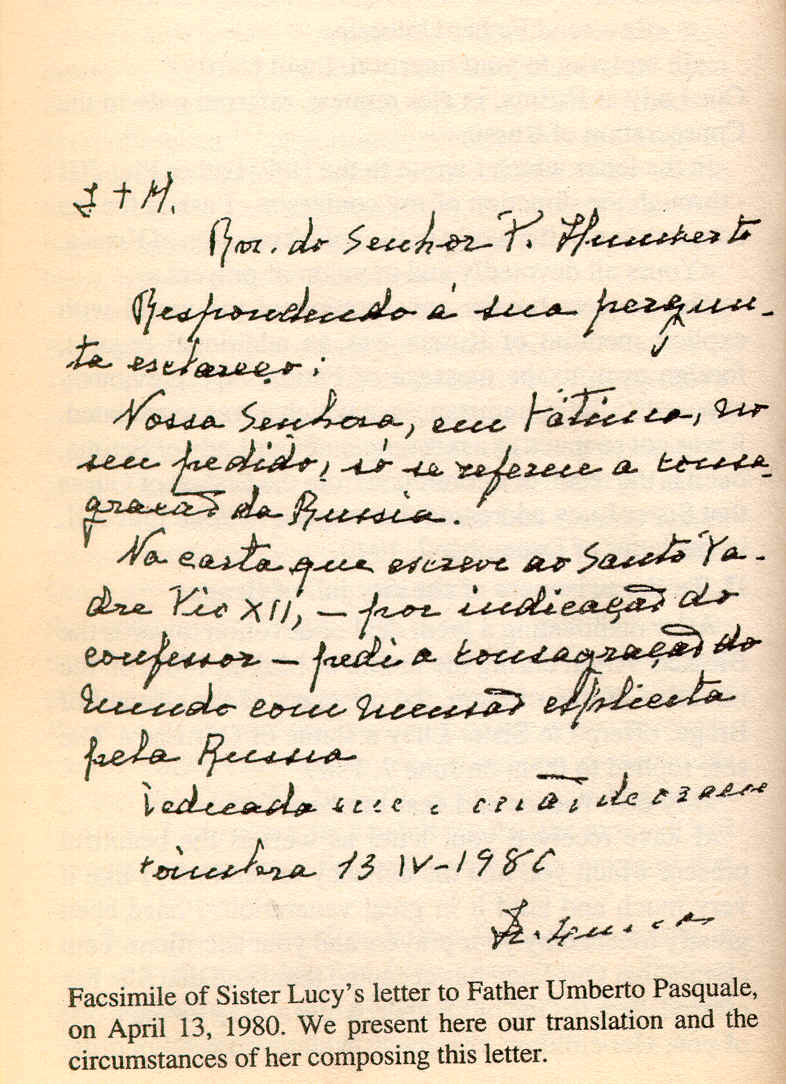 J + M.
Rev. do Senhor P. Humberto
Respondendo á sua pergun-
ta esclareço:
Nossa Senhora, em Fátima, no
seu pedido, só se refere a consa-
gração da Russia.
Na carta que escreve ao Santo Pa-
dre Pio XII, – por indicação do
confessor – pedi a consagração do
mundo com mensão esplicita
pela Russia
Dedicada em e de
Coimbra 13 IV-1980
Facsimile of Sister Lucy's letter to Father Umberto Pasquale,
on April 13, 1980. We present here our translation and the
circumstances of her composing this letter.